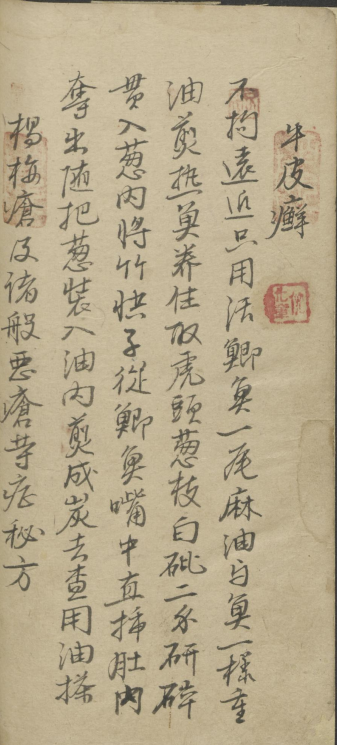 牛皮癬
不拘遠近只用活鯽魚一尾麻油与魚一樣重
油煎热魚养住取虎頭葱枝白砒二分研碎
贯入葱内将竹快子從鯽魚嘴中直揷肚内
奪出随把葱裝入油内煎成炭去查用油搽
楊梅瘡及諸般恶瘡等症秘方